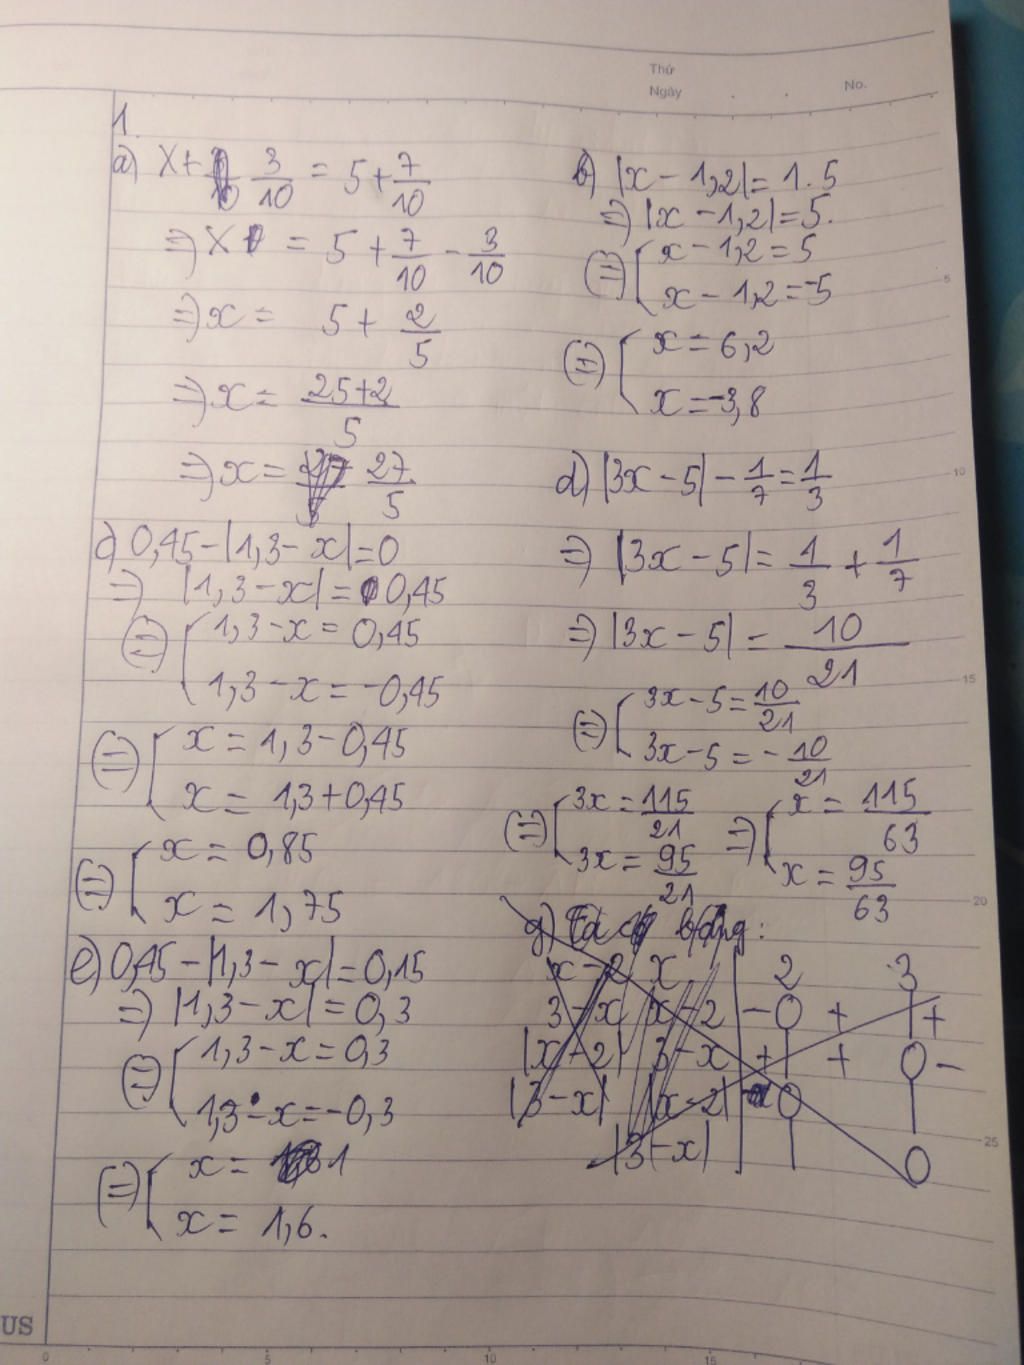 Thứ
Ngày
No.
1.
a) x + 3/10 = 5 + 7/10
=) x = 5 + 7/10 - 3/10
=) x = 5 + 2/5
=) x = 25+2/5
=) x = 27/5
b) |x - 1,2| = 1.5
=) |x - 1,2| = 5.
(=) { x - 1,2 = 5
x - 1,2 = -5
(=) { x = 6,2
x = -3,8
c) 0,45 - |1,3 - x| = 0
=) |1,3 - x| = 0,45
(=) { 1,3 - x = 0,45
1,3 - x = -0,45
(=) { x = 1,3 - 0,45
x = 1,3 + 0,45
(=) { x = 0,85
x = 1,75
d) |3x - 5| - 1/7 = 1/3
=) |3x - 5| = 1/3 + 1/7
=) |3x - 5| = 10/21
(=) { 3x - 5 = 10/21
3x - 5 = - 10/21
(=) { 3x = 115/21
3x = 95/21
=) { x = 115/63
x = 95/63
e) 0,45 - |1,3 - x| = 0,15
=) |1,3 - x| = 0,3
(=) { 1,3 - x = 0,3
1,3 - x = -0,3
(=) { x = 1
x = 1,6.
g) Ta có bảng:
x - 2 x 2 3
3 - x x - 2 - 0 + +
|x - 2| 3 - x + + 0 -
|3 - x| |x - 2| 0
|3 - x| 0
US
0 5 10 15
5
10
15
20
25